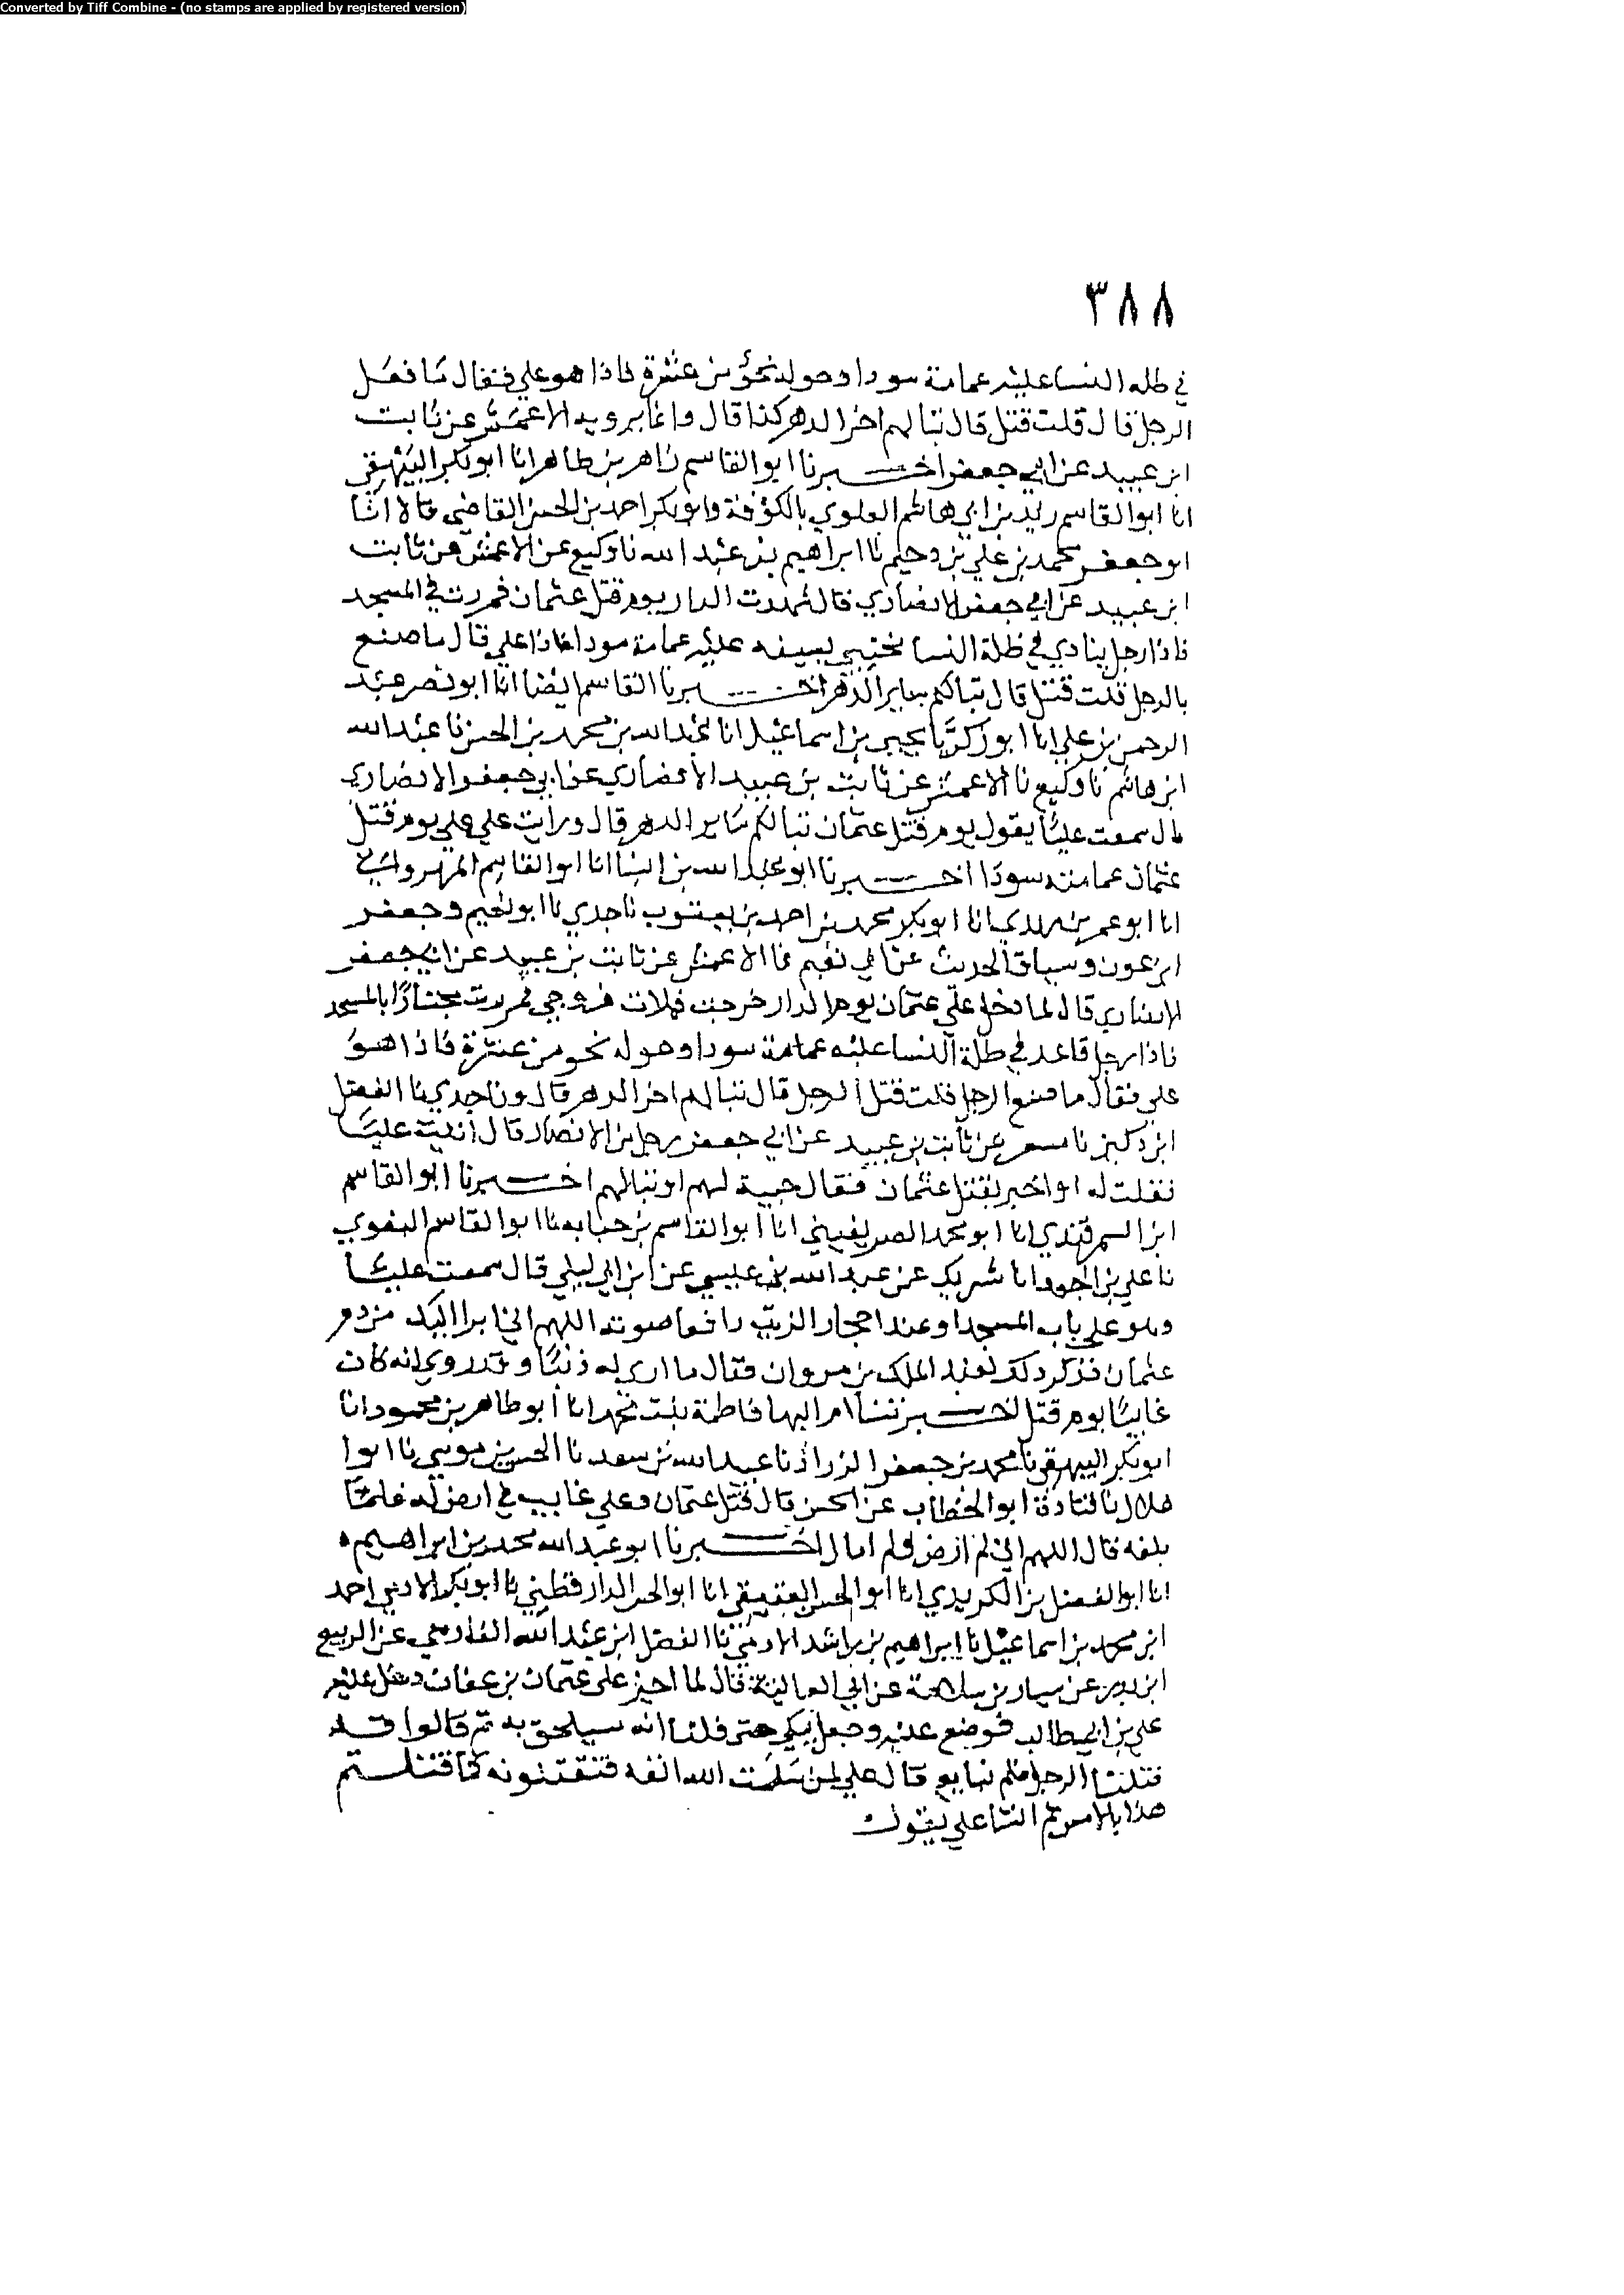 Converted by Tiff Combine - (no stamps are applied by registered version)
٣٨٨
في ظله النسا عليه عمامة سودا وحوله نحو من عشرة فاذا هو علي فقال ما فعل
الرجل قال قلت قتل قال تبا لهم اخر الدهر كذا قال وانما يرويه الاعمش عن ثابت
ابن عبيد عن ابي جعفر اخبرنا ابو القاسم زاهر بن طاهر انا ابو بكر البيهقي
انا ابو القاسم زيد بن ابي هاشم العلوي بالكوفة وابو بكر احمد بن الحسن القاضي قالا انا
ابو جعفر محمد بن علي بن دحيم نا ابراهيم بن عبد الله نا وكيع عن الاعمش عن ثابت
ابن عبيد عن ابي جعفر الانصاري قال شهدت الدار يوم قتل عثمان فمررت في المسجد
فاذا رجل ينادي في ظلة النسا محتبي بسيفه عليه عمامة سودا فاذا علي قال ما صنع
بالرجل قلت قتل قال تبا لكم سائر الدهر اخبرنا القاسم ايضا انا ابو نصر عبد
الرحمن بن علي انا ابو زكريا يحيى بن اسماعيل انا عبد الله بن محمد بن الحسن نا عبد الله
ابن هاشم نا وكيع نا الاعمش عن ثابت بن عبيد الانصاري عن ابي جعفر الانصاري
قال سمعت عليا يقول يوم قتل عثمان تبا لكم سائر الدهر قال ورايت علي علي يوم قتل
عثمان عمامة سودا اخبرنا ابو عبد الله بن البنا انا ابو القاسم المهرواني
انا ابو عمر بن مهدي انا ابو بكر محمد بن احمد بن يعقوب نا جدي نا ابو نعيم وجعفر
ابن عون وسياق الحديث عن ابي نعيم نا الاعمش عن ثابت بن عبيد عن ابي جعفر
الانصاري قال لما دخل على عثمان يوم الدار خرجت فملات فروجي فمررت مجتازا بالمسجد
فاذا رجل قاعد في ظلة النسا عليه عمامة سودا وحوله نحو من عشرة فاذا هو
علي فقال ما صنع الرجل قلت قتل الرجل قال تبا لهم اخر الدهر قال ونا جدي نا الفضل
ابن دكين نا مسعر عن ثابت بن عبيد عن ابي جعفر رجل من الانصار قال اتيت عليا
فقلت له او اخبر بقتل عثمان فقال خيبة لهم او تبا لهم اخبرنا ابو القاسم
ابن السمرقندي انا ابو محمد الصريفيني انا ابو القاسم بن حبابه نا ابو القاسم البغوي
نا علي بن الجعد انا شريك عن عبد الله بن عيسى عن ابن ابي ليلي قال سمعت عليا
وهو علي باب المسجد او عند احجار الزيت رافعا صوته اللهم اني ابرا اليك من دم
عثمان فذكر ذلك لعبد الملك بن مروان فقال ما ارى له ذنبا وقد روي انه كان
غايبا يوم قتل اخبرتنا ام البها فاطمة بنت محمد انا ابو طاهر بن محمود انا
ابو بكر نا محمد بن جعفر الزراد نا عبيد الله بن سعد نا الحسن بن موسى نا ابو
هلال نا قتادة ابو الخطاب عن الحسن قال قتل عثمان وعلي غايب في ارض له فلما
بلغه قال اللهم اني لم ارض ولم امال اخبرنا ابو عبد الله محمد بن ابراهيم
انا ابو الفضل بن الكريدي انا ابو الحسن العتيقي انا ابو الحسن الدارقطني نا ابو بكر الادمي احمد
ابن محمد بن اسماعيل نا ابراهيم بن راشد الادمي نا الفضل ابن عبد الله الفارسي عن الربيع
ابن بدر عن سيار بن سلامة عن ابي العالية قال لما احيز على عثمان بن عفان دخل عليه
علي بن ابي طالب فوضع عليه وجعل يبكي حتى قلنا انه سيلحق به ثم قالوا قد
قتلنا الرجل فلم نبايع قال علي لمن سلت الله انفه فتقتلونه كما قتلتم
هذا بالامس ثم انشا علي يقول